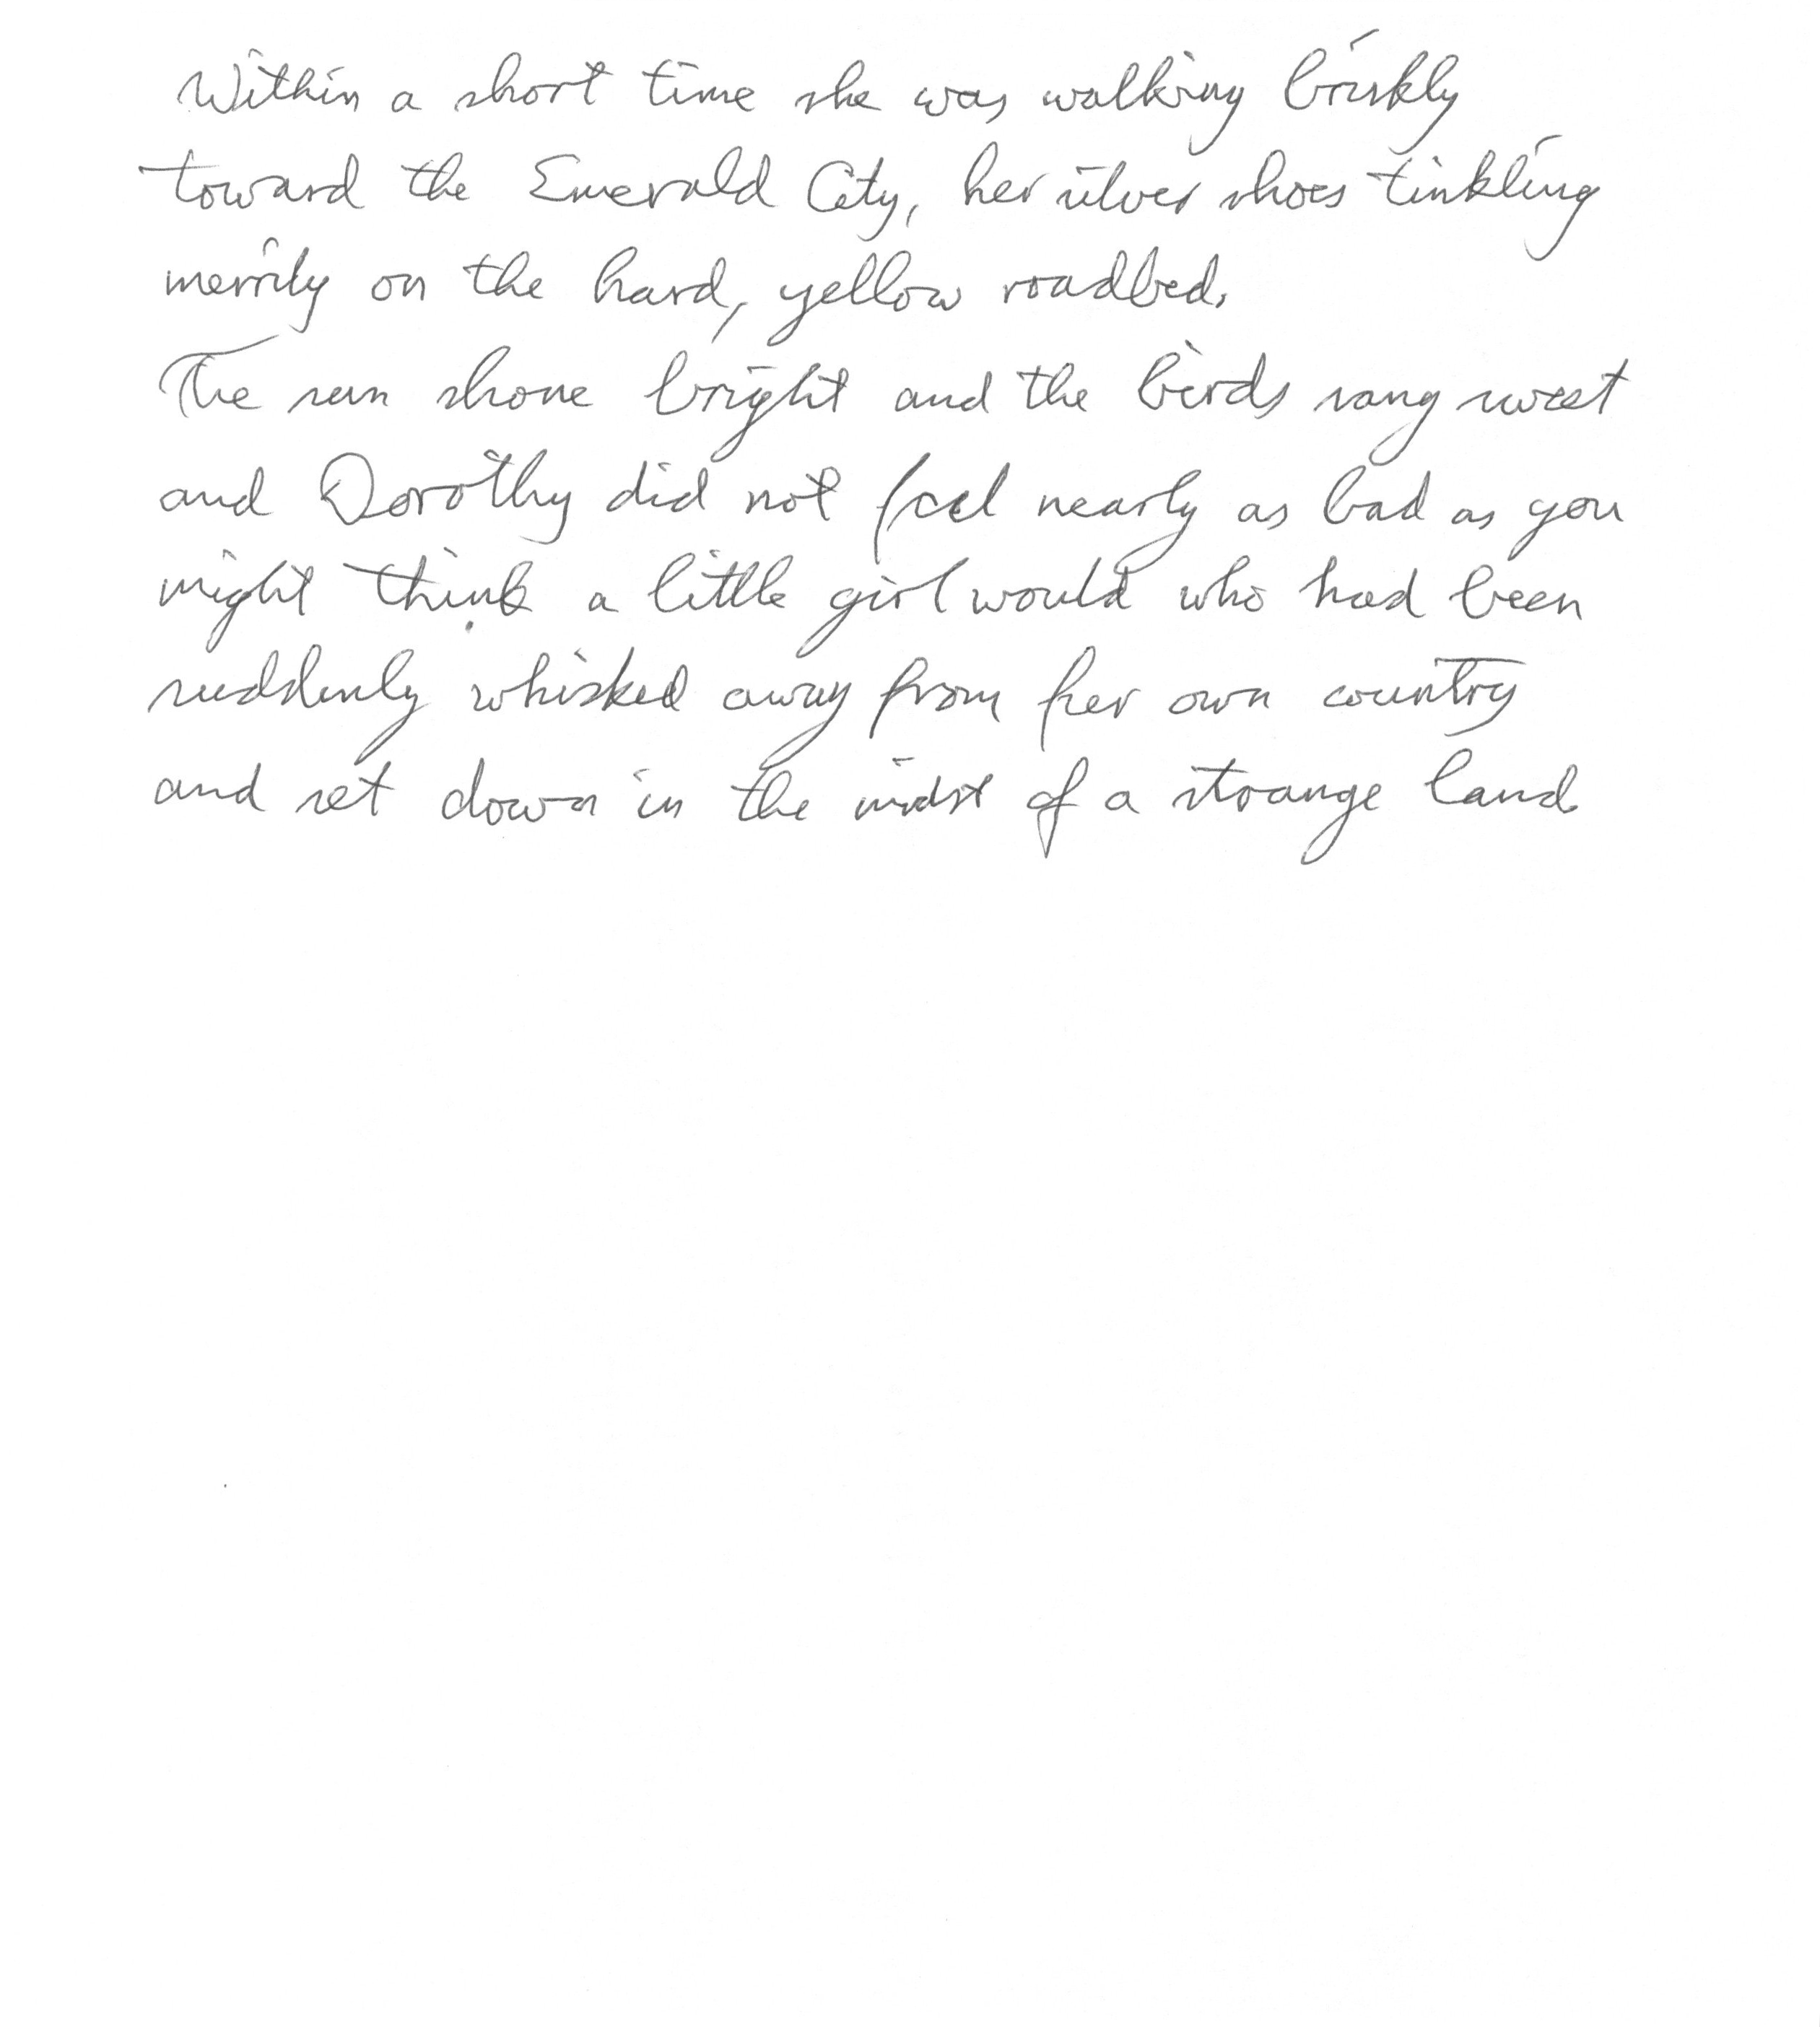 Within a short time she was walking briskly
toward the Emerald City, her silver shoes tinkling
merrily on the hard, yellow roadbed.
The sun shone bright and the birds sang sweet
and Dorothy did not feel nearly as bad as you
might think a little girl would who had been
suddenly whisked away from her own country
and set down in the midst of a strange land